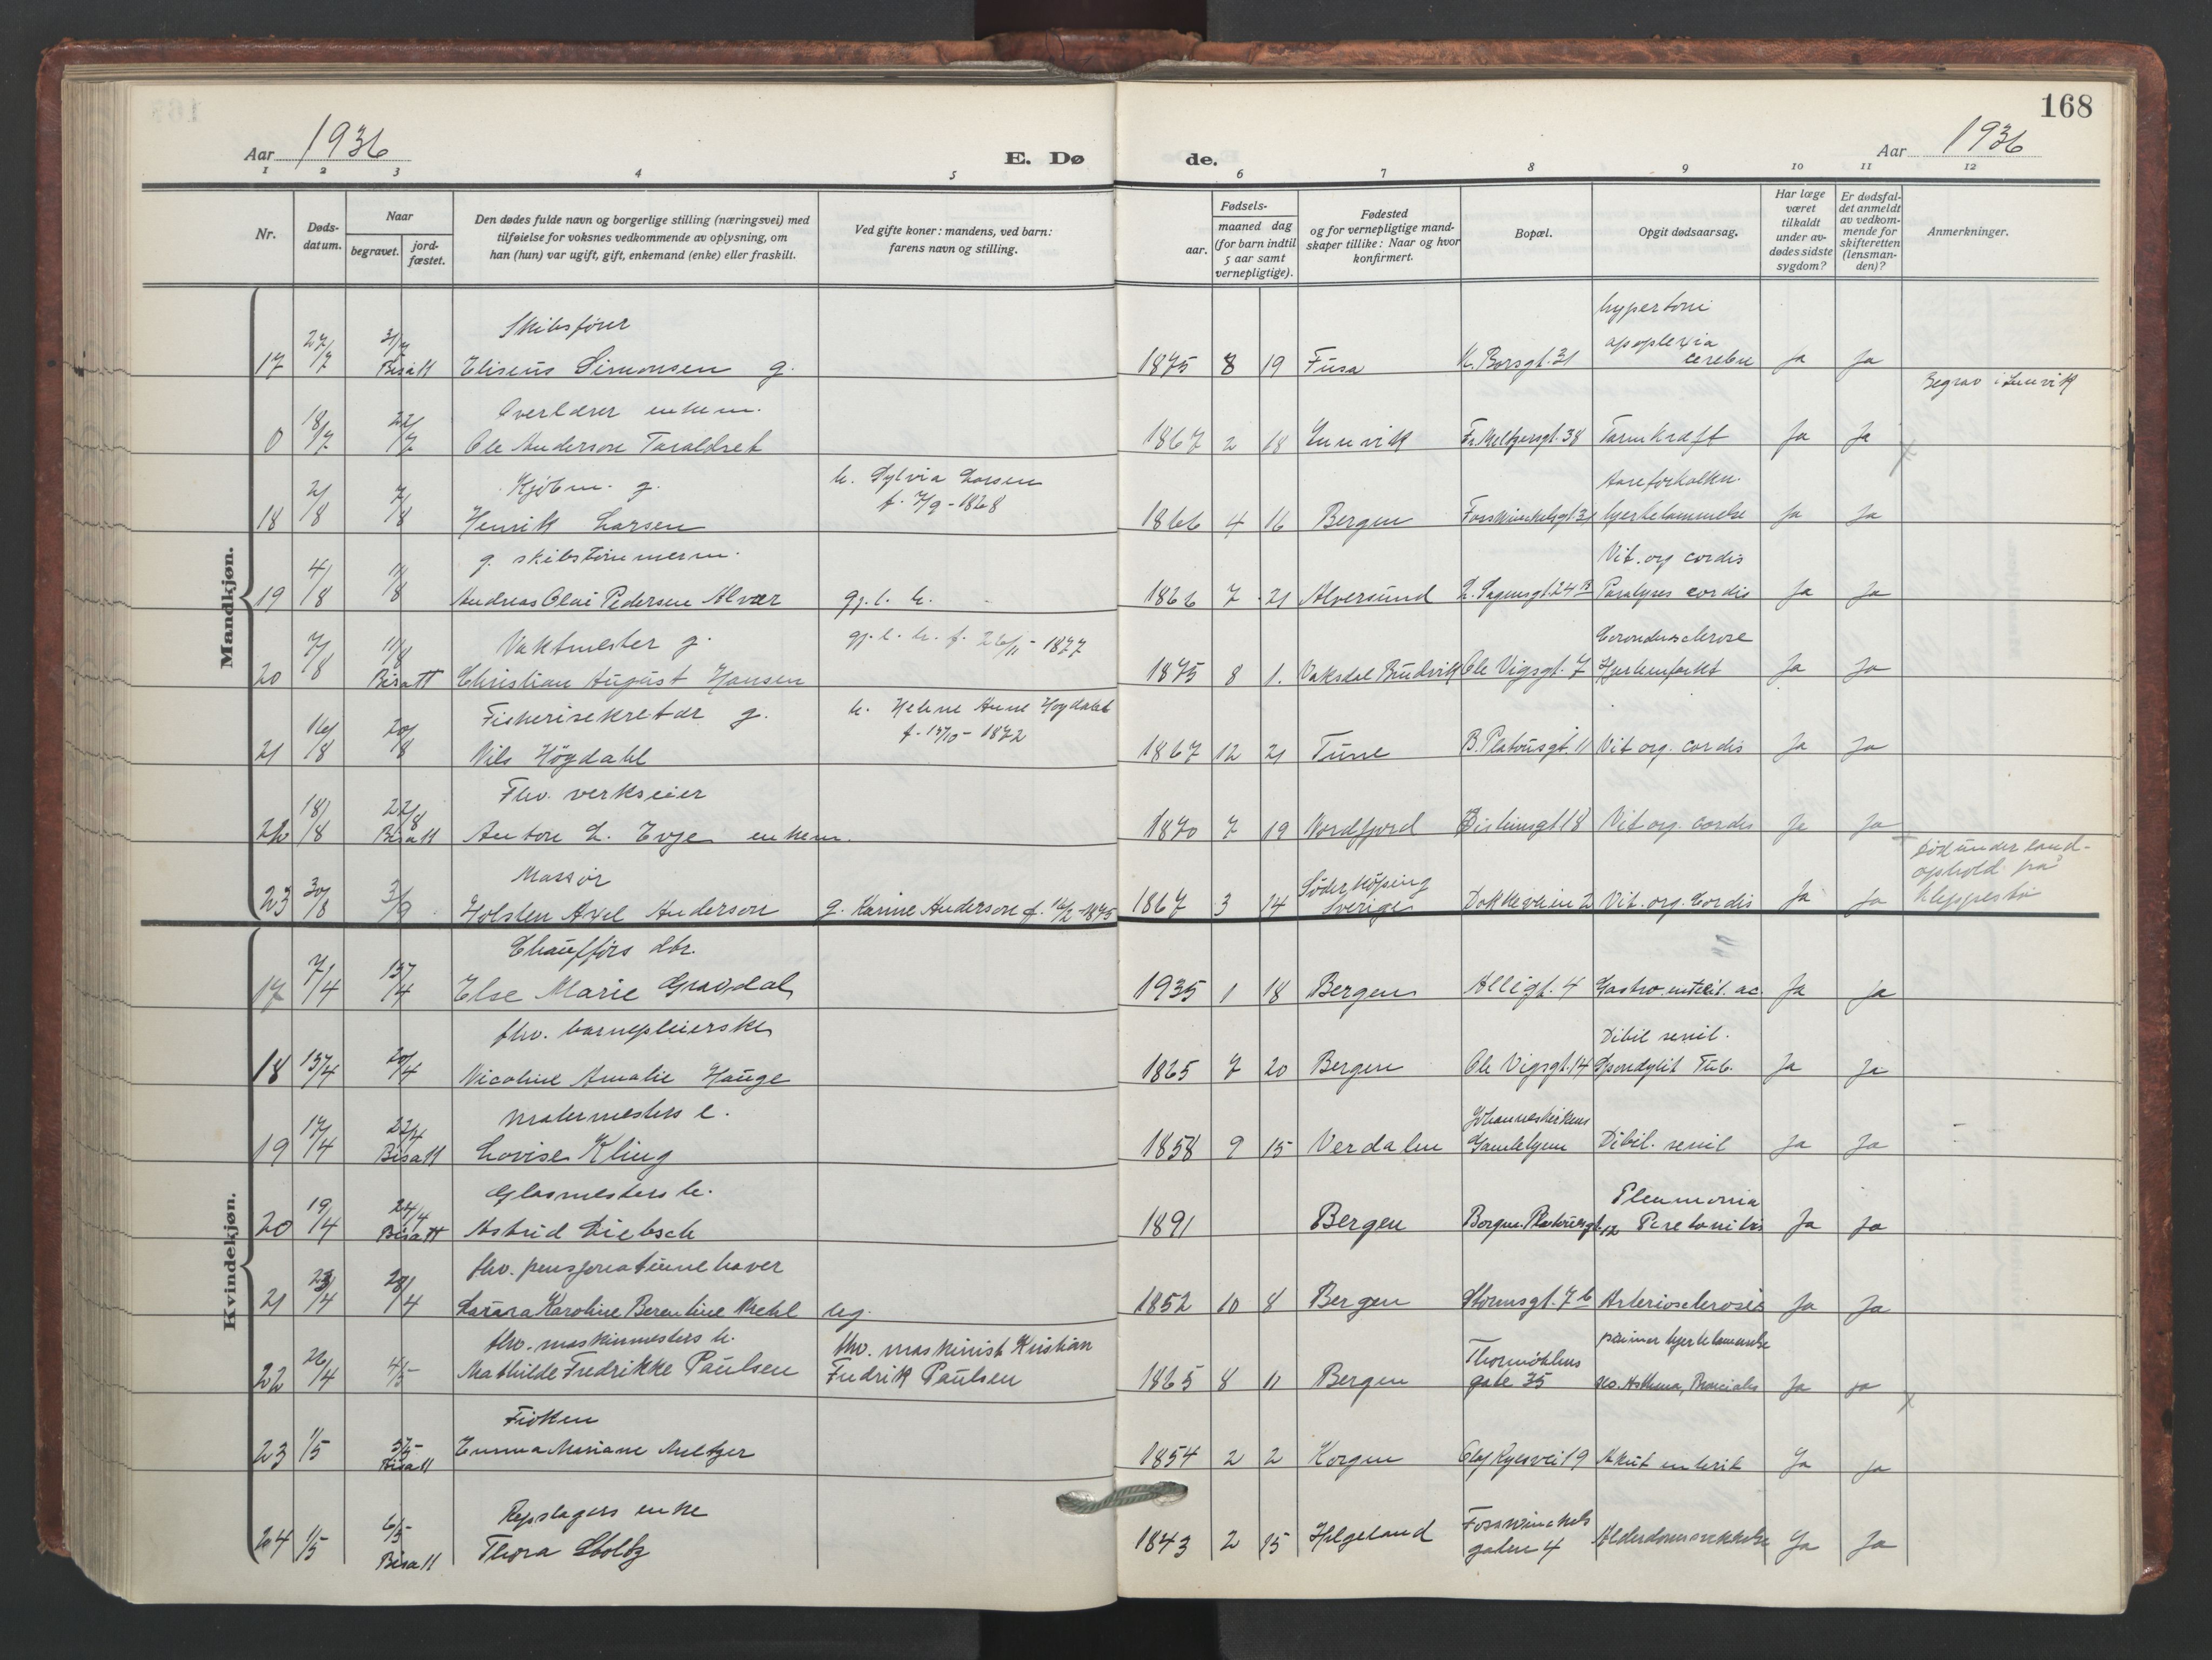 168
Aar 1936
E. Dø
de.
Aar 1936
1 2 3 4 5 6 7 8 9 10 11 12
Nr.
Døds-
datum.
Naar
begravet.
jord-
fæstet.
Den dødes fulde navn og borgerlige stilling (næringsvei) med
tilføielse for voksnes vedkommende av oplysning, om
han (hun) var ugift, gift, enkemand (enke) eller fraskilt.
Ved gifte koner: mandens, ved barn:
farens navn og stilling.
Fødsels-
aar.
maaned dag
(for barn indtil
5 aar samt
vernepligtige).
Fødested
og for vernepligtige mand-
skaper tillike: Naar og hvor
konfirmert.
Bopæl.
Opgit dødsaarsag.
Har læge
været
tilkaldt
under av-
dødes sidste
sygdom?
Er dødsfal-
det anmeldt
av vedkom-
mende for
skifteretten
(lensman-
den)?
Anmerkninger.
Mandkjøn.
Skibsfører hypertoni
17 27/7 31/7 Bisatt Eliseus Simonsen g. 1875 8 19 Fusa K. Borsgt. 31 apoplexia cerebri Ja Ja
Overlærer enkem. Begrav i
0 18/7 22/7 Ole Anderson Taraldset 1867 2 18 Fr. Meltzersgt. 38 Tarmkræft Ja Ja
Kjøbm. g. h. Sylvia Larsen Aareforkalkn.
18 2/8 7/8 Henrik Larsen f. 7/9-1868 1866 4 16 Bergen Fosswinckelsgt. hjertelammelse Ja Ja
g. skibstømmerm. Vit. org cordis
19 4/8 11/8 Andreas Olai Pedersen Alvær gj. l. h. 1866 7 21 Alversund L. Sagensgt. 24 B Paralyses cordis Ja Ja
Vaktmester g. gj. l. h. f. 26/11-1877
20 7/8 11/8 Bisatt Christian August Hansen 1875 8 1. Vaksdal Bruvik Ole Vigsgt. 7 Ja Ja
Fiskerisekretær g. h. Helene Anne Høgdahl
21 16/8 20/8 Nils Høgdahl 1872 1867 12 21 Tune B. Platousgt. 11 Vit org. cordis Ja Ja
Fhv. verkseier
22 18/8 22/8 Bisatt Anton L. Evje enkem. 1870 7 19 Nordfjord Vit org. cordis Ja Ja
Massør Død under land-
ophold på
23 30/8 3/9 Holsten Axel Anderson g. Karine Anderson f. 16/2-1875 1867 3 14 Söderköping Sverige Dokkeveien 2 Vit. org. Cordis Ja Ja Kleppestø
Kvindekjøn.
Chaufførs dtr.
17 7/4 13/4 Else Marie Gravdal 1935 1 18 Bergen Allégt. 4 Gastro enterit. ac. Ja Ja
fhv. barnepleierske Dibil senil.
18 13/4 20/4 Nicoline Amalie Hauge 1865 7 20 Bergen Ole Vigsgt. 14 Spondylit Tub. Ja Ja
Malermesters e. Johanneskirkens
19 17/4 22/4 Bisatt Lovise Kling 1858 9 15 Verdalen Gamlehjem Dibil. senil Ja Ja
Glasmesters h. Pleumonia
20 19/4 24/4 Bisatt Astrid Diebsch 1891 Bergen Borgm. Platousgt. 12 Peretonitis Ja Ja
fhv. pensjonatinnehaver
21 23/4 28/4 Laura Karoline Berentine Mehl ug. 1852 10 8 Bergen Stormsgt. 7 b Arteriosclerosis Ja Ja
fhv. maskinmesters h. fhv. maskinist Kristian Thormøhlens primær hjertelammelse
22 26/4 4/5 Mathilde Fredrikke Paulsen Fredrik Paulsen 1865 8 11 Bergen gate 35 sec. Asthma, Ja Ja
Frøken
23 1/5 5/5 Bisatt Emma Mariane Meltzer 1854 2 2 Korgen Olaf Ryesvei 19 Akut enterit Ja Ja
Repslagers enke Fosswinckels
24 1/5 6/5 Bisatt Thora Stoltz 1843 2 15 Helgeland gaten 4 Alderdomssvekkelse Ja Ja